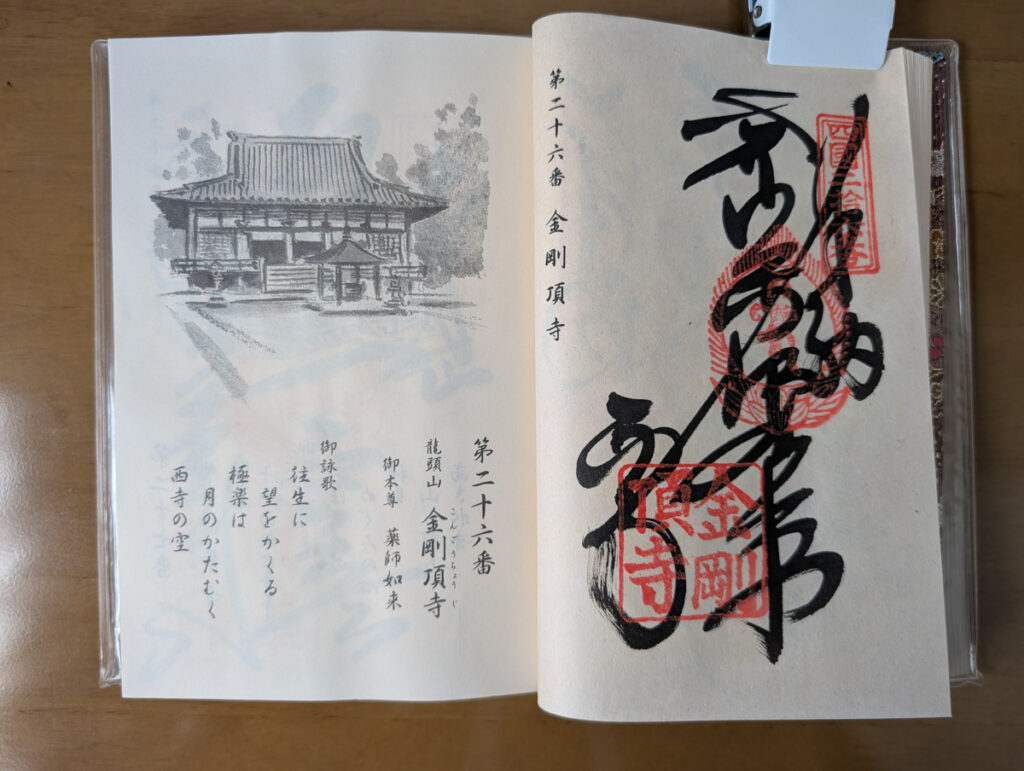 奉納
金剛
頂寺
第二十六番 金剛頂寺
第二十六番
龍頭山 金剛頂寺
こんごうちょうじ
御本尊 薬師如来
御詠歌
往生に
望をかくる
極楽は
月のかたむく
西寺の空